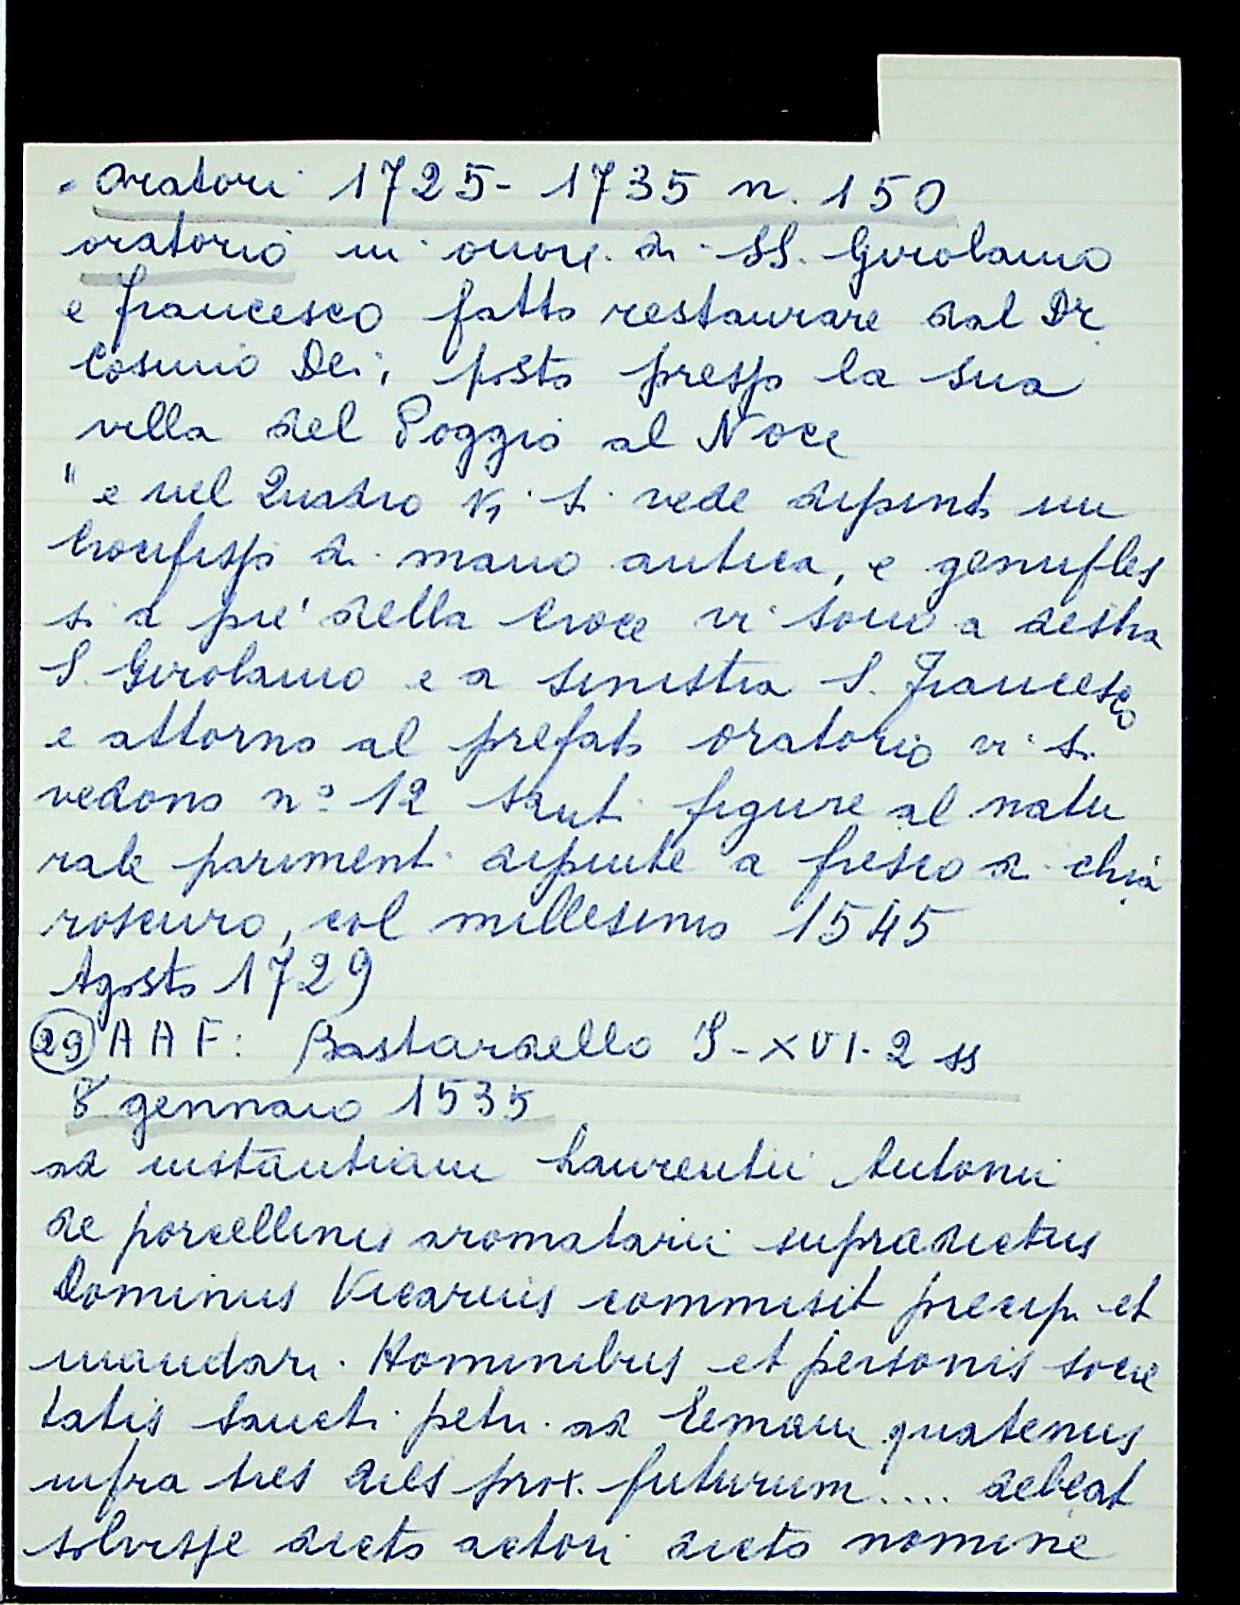 . Oratori 1725-1735 n. 150
oratorio in onore di SS. Girolamo
e Francesco fatto restaurare dal Dr
Cosimo Dei, posto presso la sua
villa del Poggio al Noce
" e nel Quadro vi si vede dipinto un
Crocifisso di mano antica, e genufles
si a piè della Croce vi sono a destra
S. Girolamo e a sinistra S. Francesco
e attorno al prefato oratorio vi si
vedono n° 12 Santi figure al natu
rale parimenti dipinte a fresco di chia
roscuro, col millesimo 1545
Agosto 1729
29 AAF: Bastardello S-XVI-2 ss
8 gennaio 1535
ad instantiam Laurentii Antonii
de porcellinis aromatarii supradictus
Dominus Vicarius commisit precipi et
mandari Hominibus et personis socie
tatis Sancti petri ad Eemam quatenus
infra tres dies prox. futurum.... debeat
solvisse dicto actori dicto nomine